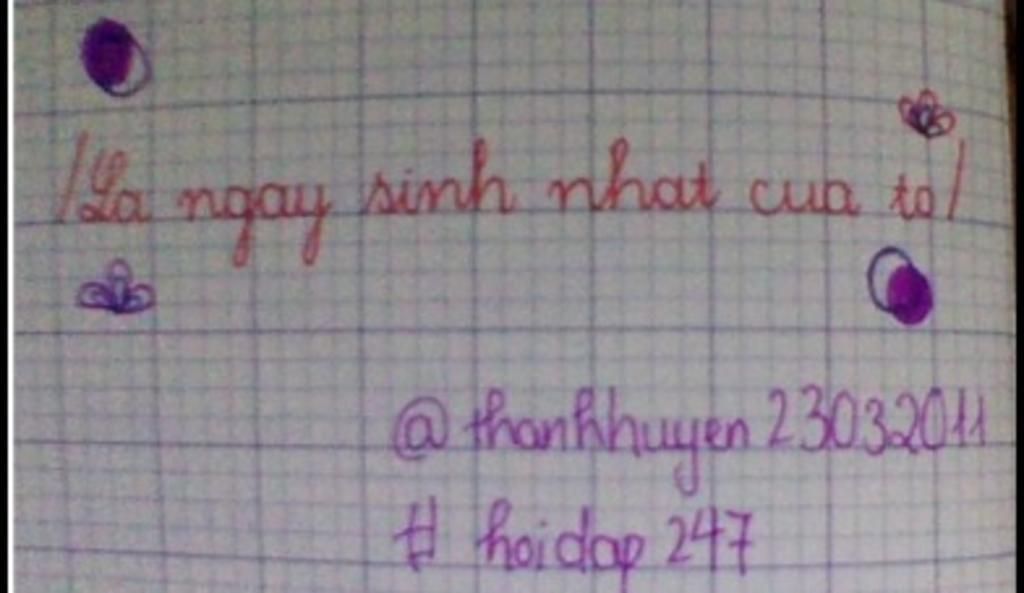 /La ngay sinh nhat cua to/
@thanhhuyen23032011
# hoidap247